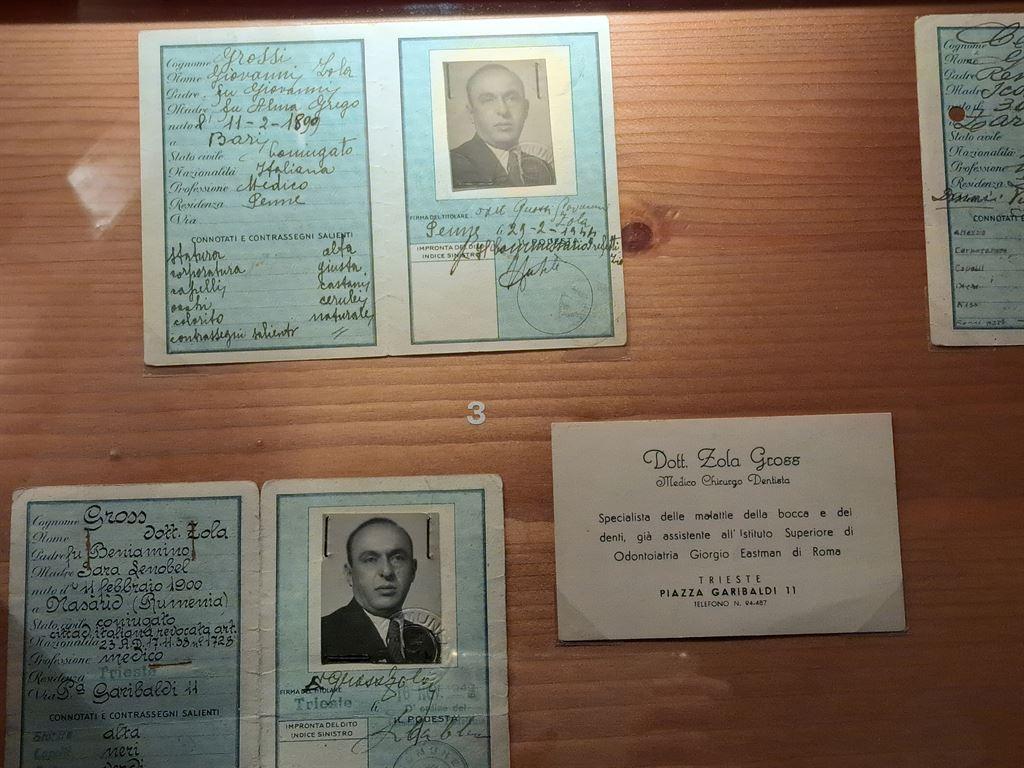 Cognome Grossi
Nome Giovanni Zola
Padre fu Giovanni
Madre fu Alma Grego
nato il 11-2-1899
a Bari
Stato civile Coniugato
Nazionalità Italiana
Professione Medico
Residenza Penne
Via
CONNOTATI E CONTRASSEGNI SALIENTI
Statura alta
corporatura giusta
capelli castani
occhi cerulei
colorito naturale
contrassegni salienti =
FIRMA DEL TITOLARE Dott Grossi Giovanni
Zola
Penne li 29-2-1944
IMPRONTA DEL DITO
INDICE SINISTRO
IL PODESTÀ
Cognome
Nome
Padre
Madre
nato il
Stato civile
Nazionalità
Professione
Residenza
Via
CONNOTATI
Capelli
3
Cognome Gross
Nome Dott. Zola
Padre fu Beniamino
Madre Sara Lenobel
nato il 11 febbraio 1900
a Nasaud (Rumenia)
Stato civile coniugato
Nazionalità citad. italiana revocata art.
23 R.D. 17.11.38 n° 1728
Professione medico
Residenza Trieste
Via Pa Garibaldi 11
CONNOTATI E CONTRASSEGNI SALIENTI
Statura alta
Capelli neri
FIRMA DEL TITOLARE
Trieste li
D'ordine del
IMPRONTA DEL DITO
INDICE SINISTRO
IL PODESTÀ
Dott. Zola Gross
Medico Chirurgo Dentista
Specialista delle malattie della bocca e dei
denti, già assistente all'Istituto Superiore di
Odontoiatria Giorgio Eastman di Roma
TRIESTE
PIAZZA GARIBALDI 11
TELEFONO N. 94-487